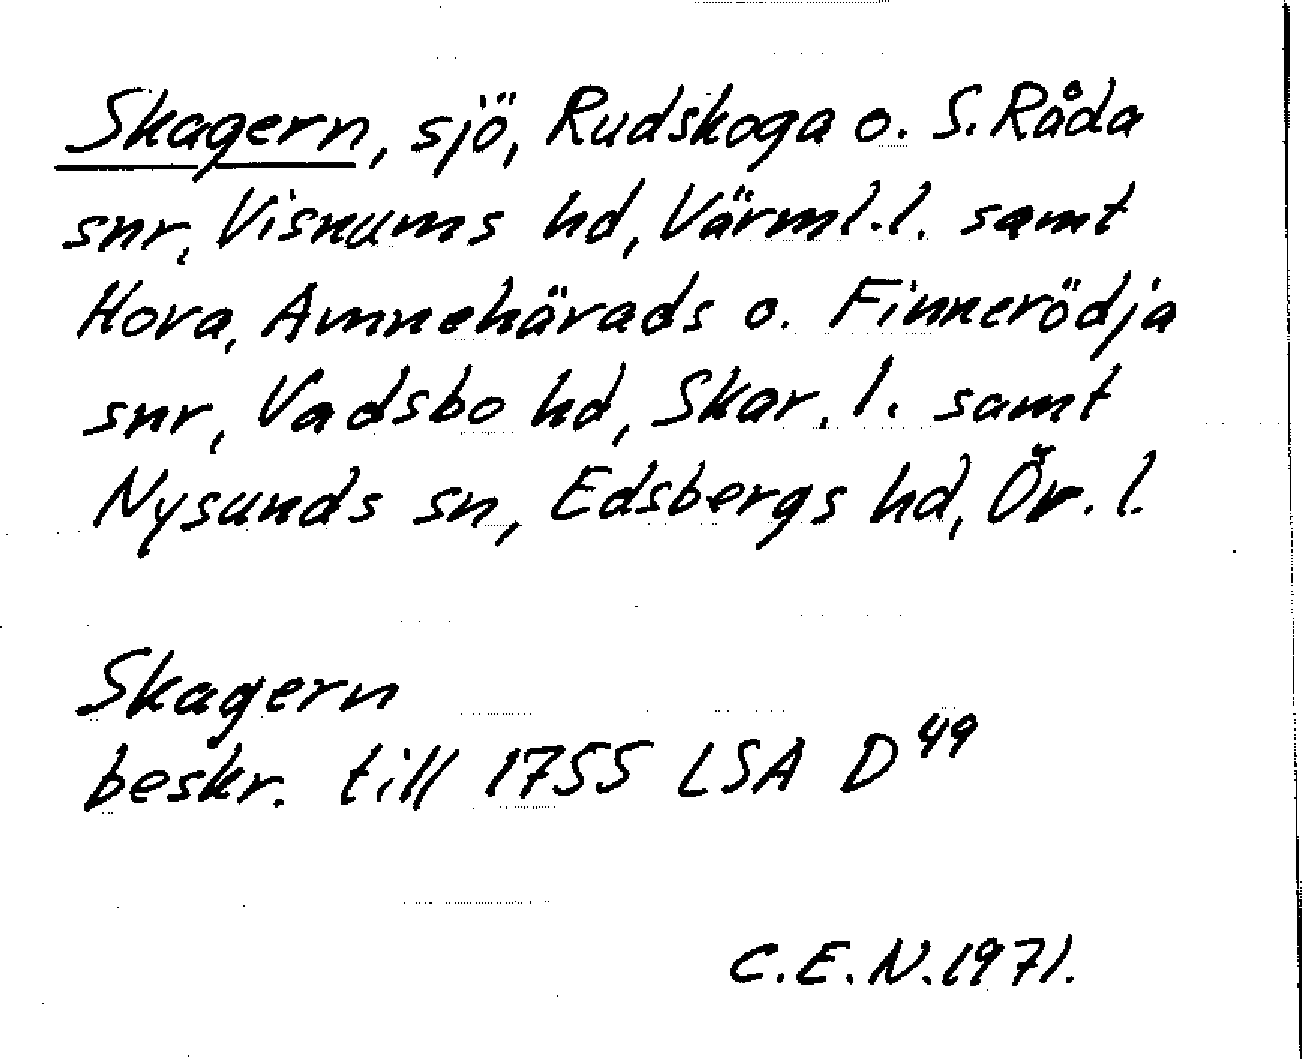 Skagern, sjö, Rudskoga o. S. Råda
snr, Visnums hd, Värml. l. samt
Hova, Amnehärads o. Finnerödja
snr, Vadsbo hd, Skar. l. samt
Nysunds sn, Edsbergs hd, Ör. l.
Skagern
beskr. till 1755 LSA D 49
C.E.N. 1971.